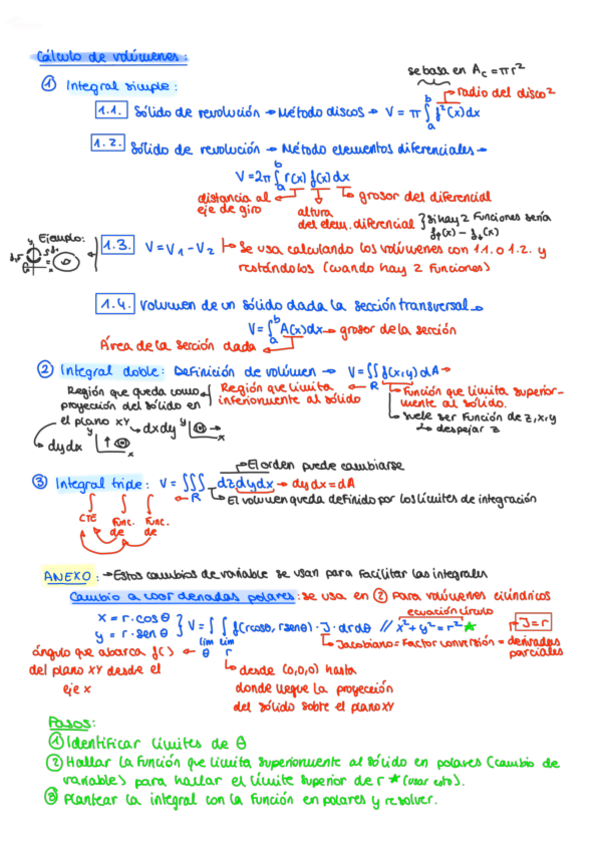 Cálculo de volúmenes:
① Integral simple:
se basa en Ac = πr²
radio del disco²
1.1. Sólido de revolución → Método discos → V = π∫ₐᵇ f²(x)dx
1.2. Sólido de revolución → Método elementos diferenciales →
V = 2π∫ₐᵇ r(x) f(x) dx
distancia al eje de giro
altura del elem. diferencial
grosor del diferencial
} si hay 2 funciones sería f↑(x) - f↓(x)
Ejemplo:
1.3. V = V₁ - V₂ → Se usa calculando los volúmenes con 1.1. o 1.2. y
restándolos (cuando hay 2 funciones)
1.4. Volumen de un sólido dada la sección transversal →
V = ∫ₐᵇ A(x)dx → grosor de la sección
Área de la sección dada
② Integral doble: Definición de volúmen → V = ∫∫ f(x,y) dA →
R
Región que queda como
proyección del sólido en
el plano XY
Región que limita
inferiormente al sólido
Función que limita superior-
mente al sólido.
suele ser función de z,x,y
→ despejar z
dxdy
dydx
El orden puede cambiarse
③ Integral triple: V = ∫∫∫ dzdydx → dydx = dA
R
El volumen queda definido por los límites de integración
∫ ∫ ∫
CTE Func. de Func. de
ANEXO: → Estos cambios de variable se usan para facilitar las integrales
Cambio a coordenadas polares: se usa en ② para volúmenes cilíndricos
ecuación círculo
x = r·cosθ
y = r·senθ
} V = ∫ ∫ f(rcosθ, rsenθ)·J·drdθ // x²+y²=r² ★
J = r
lim θ lim r
Jacobiano = Factor conversión = derivadas parciales
ángulo que abarca f()
del plano XY desde el
eje x
desde (0,0,0) hasta
donde llegue la proyección
del sólido sobre el plano XY
Pasos:
① Identificar límites de θ
② Hallar la función que limita superiormente al sólido en polares (cambio de
variable) para hallar el límite superior de r ★ (usar esto).
③ Plantear la integral con la función en polares y resolver.